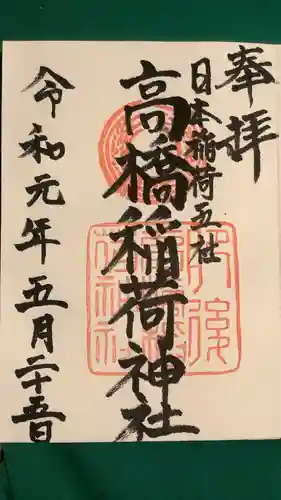 奉拝
日本稲荷五社
高橋稲荷神社
令和元年五月二十五日